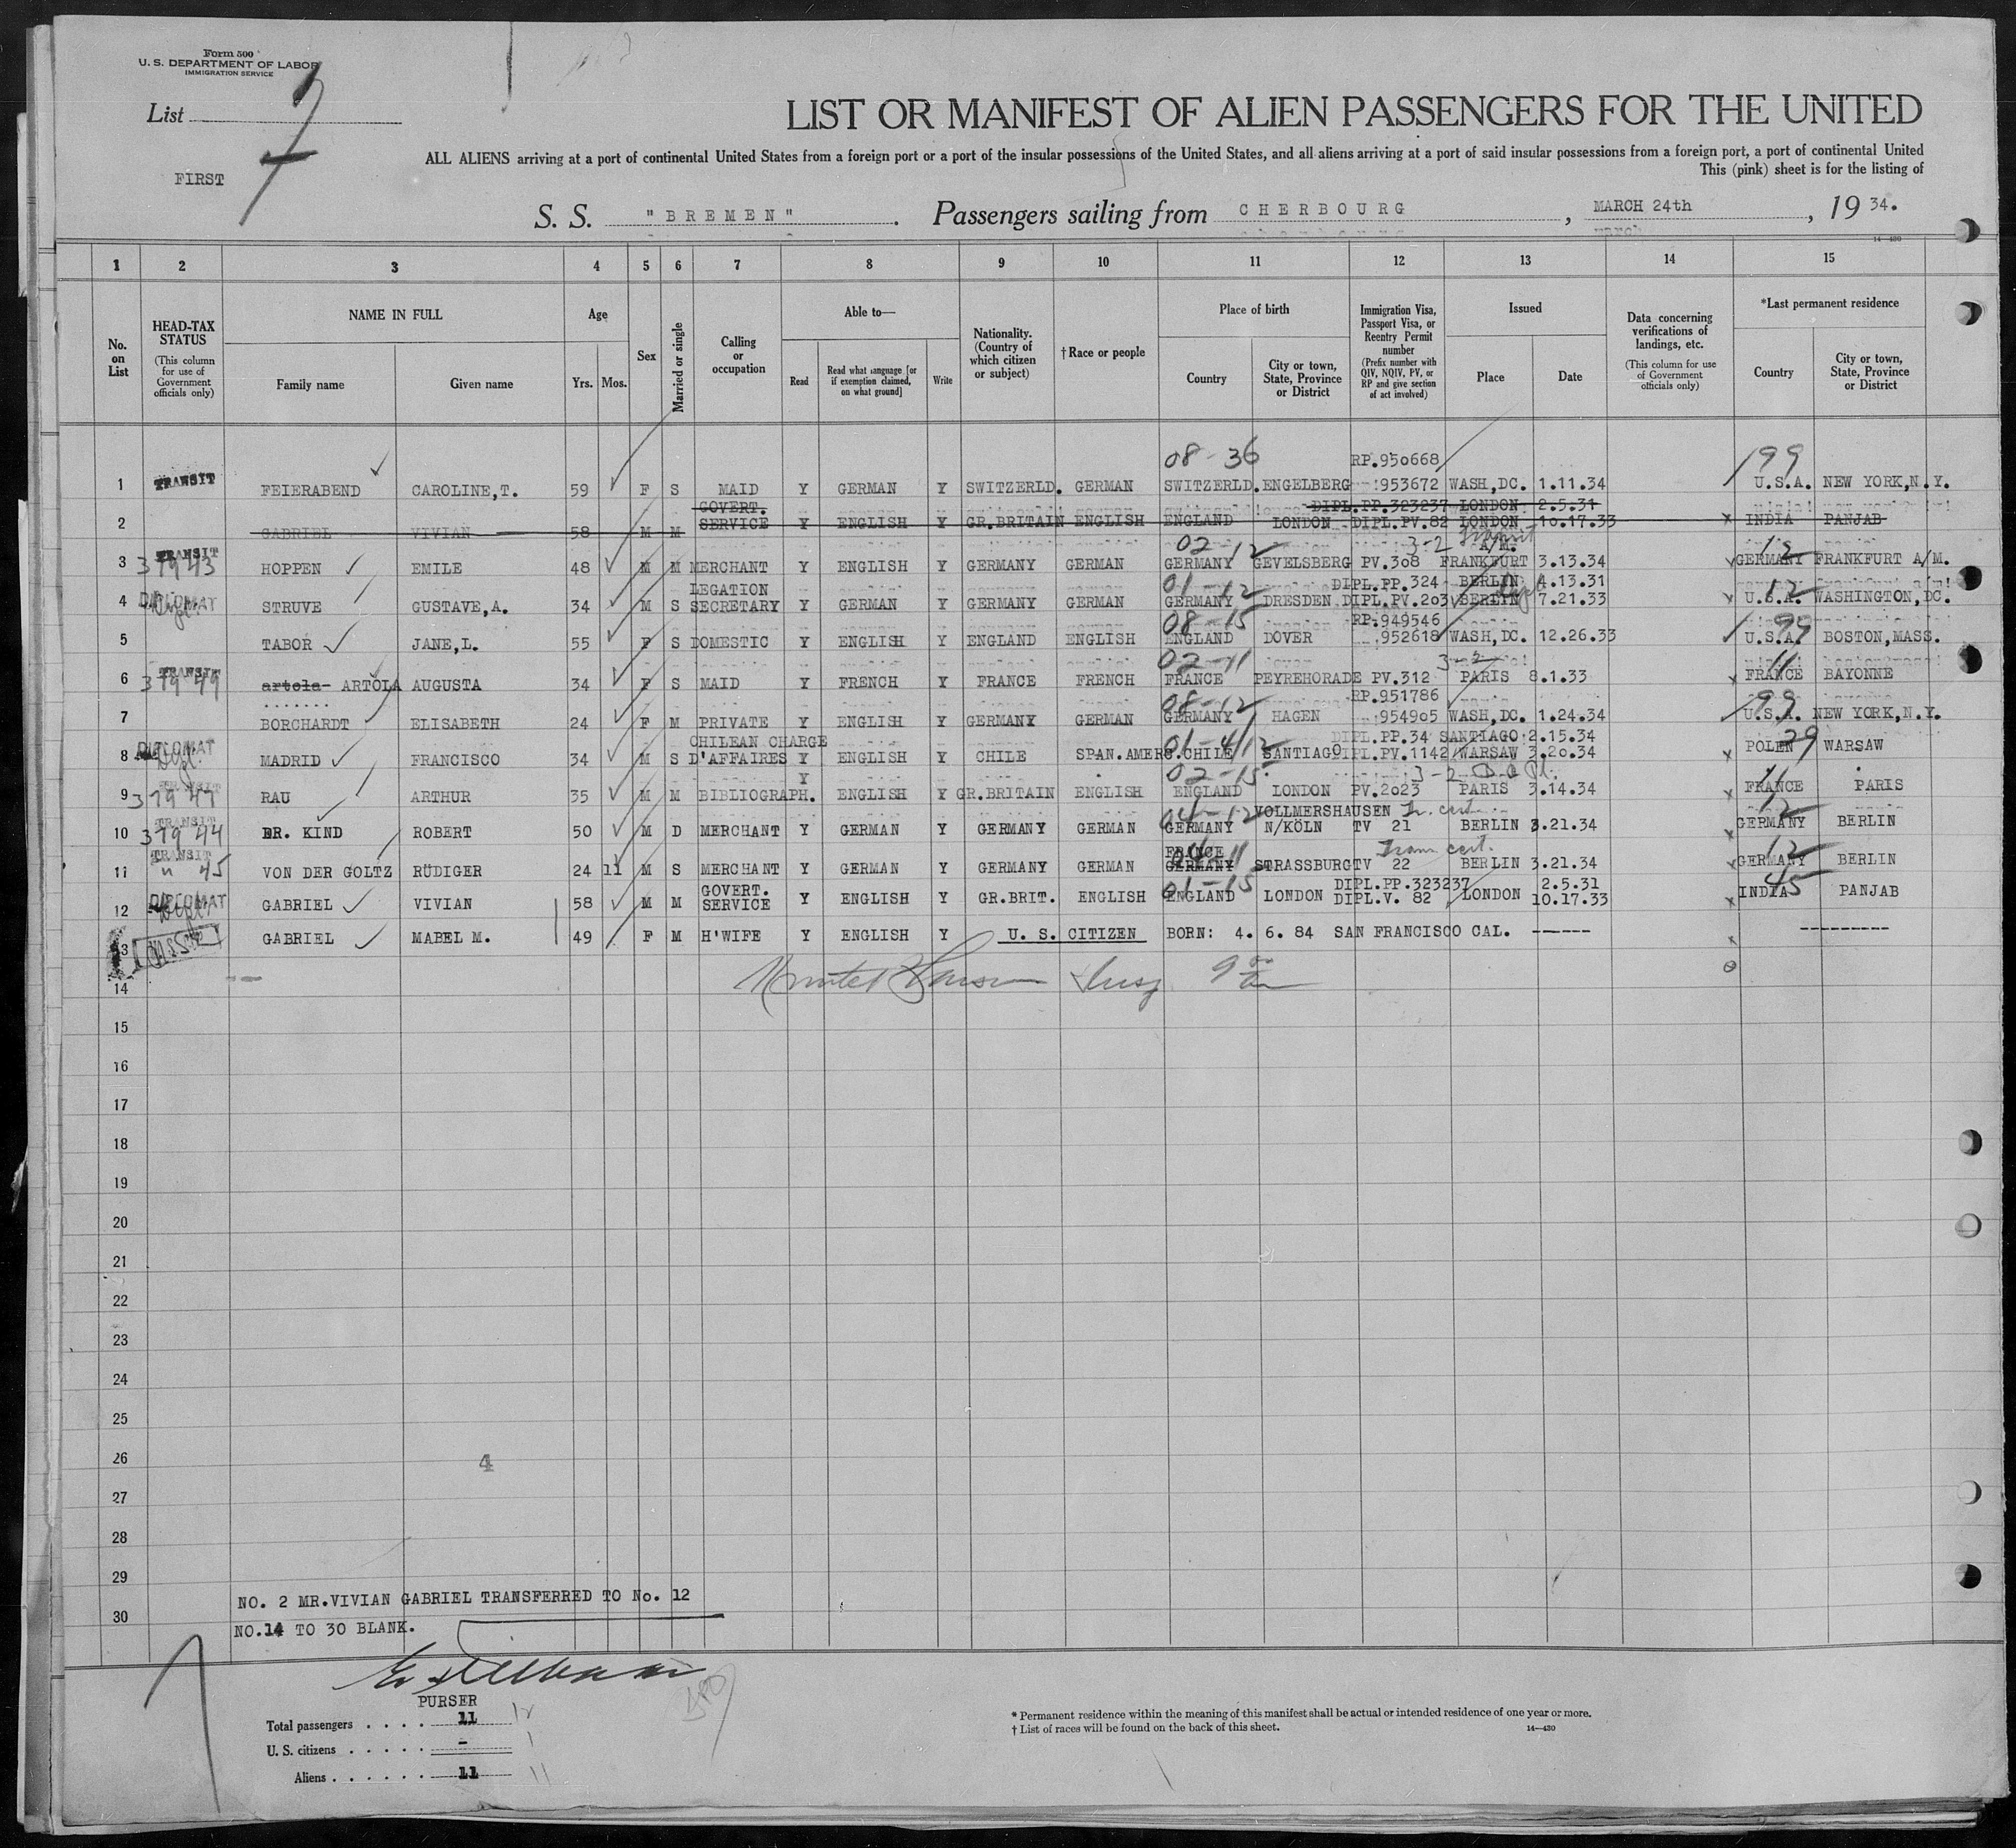 Form 500
U. S. DEPARTMENT OF LABOR
IMMIGRATION SERVICE
List 7
FIRST
LIST OR MANIFEST OF ALIEN PASSENGERS FOR THE UNITED
ALL ALIENS arriving at a port of continental United States from a foreign port or a port of the insular possessions of the United States, and all aliens arriving at a port of said insular possessions from a foreign port, a port of continental United
This (pink) sheet is for the listing of
S. S. "BREMEN" . Passengers sailing from CHERBOURG , MARCH 24th , 19 34.
14—430
1 2 3 4 5 6 7 8 9 10 11 12 13 14 15
No. on List
HEAD-TAX STATUS (This column for use of Government officials only)
NAME IN FULL Family name Given name
Age Yrs. Mos.
Sex
Married or single
Calling or occupation
Able to— Read Read what language [or if exemption claimed, on what ground] Write
Nationality. (Country of which citizen or subject)
†Race or people
Place of birth Country City or town, State, Province or District
Immigration Visa, Passport Visa, or Reentry Permit number (Prefix number with QIV, NQIV, PV, or RP and give section of act involved)
Issued Place Date
Data concerning verifications of landings, etc. (This column for use of Government officials only)
*Last permanent residence Country City or town, State, Province or District
08-36 RP.950668 199
1 TRANSIT FEIERABEND CAROLINE,T. 59 F S MAID Y GERMAN Y SWITZERLD. GERMAN SWITZERLD. ENGELBERG 953672 WASH,DC. 1.11.34 U.S.A. NEW YORK,N.Y.
GOVERT. DIPL.PP.323237 LONDON 2.5.31
2 GABRIEL VIVIAN 58 M M SERVICE Y ENGLISH Y GR.BRITAIN ENGLISH ENGLAND LONDON DIPL.PV.82 LONDON 10.17.33 INDIA PANJAB
TRANSIT 02-12 3-2 A/M. 12
3 37943 HOPPEN EMILE 48 M M MERCHANT Y ENGLISH Y GERMANY GERMAN GERMANY GEVELSBERG PV.308 FRANKFURT 3.13.34 GERMANY FRANKFURT A/M.
LEGATION 01-12 DIPL.PP.324 BERLIN 4.13.31 12
4 DIPLOMAT STRUVE GUSTAVE,A. 34 M S SECRETARY Y GERMAN Y GERMANY GERMAN GERMANY DRESDEN DIPL.PV.203 BERLIN 7.21.33 U.S.A. WASHINGTON,DC.
08-15 RP.949546 99
5 TABOR JANE,L. 55 F S DOMESTIC Y ENGLISH Y ENGLAND ENGLISH ENGLAND DOVER 952618 WASH,DC. 12.26.33 U.S.A. BOSTON,MASS.
TRANSIT 02-11 3-2 11
6 37949 artola- ARTOLA AUGUSTA 34 F S MAID Y FRENCH Y FRANCE FRENCH FRANCE PEYREHORADE PV.312 PARIS 8.1.33 FRANCE BAYONNE
08-12 RP.951786 99
7 BORCHARDT ELISABETH 24 F M PRIVATE Y ENGLISH Y GERMANY GERMAN GERMANY HAGEN 954905 WASH,DC. 1.24.34 U.S.A. NEW YORK,N.Y.
DIPLOMAT CHILEAN CHARGE DIPL.PP.34 SANTIAGO 2.15.34 29
8 MADRID FRANCISCO 34 M S D'AFFAIRES Y ENGLISH Y CHILE SPAN.AMER. CHILE SANTIAGO DIPL.PV.1142 WARSAW 3.20.34 POLEN WARSAW
02-15 3-2 11
9 37947 RAU ARTHUR 35 M M BIBLIOGRAPH. Y ENGLISH Y GR.BRITAIN ENGLISH ENGLAND LONDON PV.2023 PARIS 3.14.34 FRANCE PARIS
TRANSIT 04-12 VOLLMERSHAUSEN Tr. cert. 12
10 37944 DR. KIND ROBERT 50 M D MERCHANT Y GERMAN Y GERMANY GERMAN GERMANY N/KÖLN TV 21 BERLIN 3.21.34 GERMANY BERLIN
TRANSIT FRANCE 04-11 Tran cert. 12
11 " 45 VON DER GOLTZ RÜDIGER 24 11 M S MERCHANT Y GERMAN Y GERMANY GERMAN GERMANY STRASSBURG TV 22 BERLIN 3.21.34 GERMANY BERLIN
GOVERT. 01-15 DIPL.PP.323237 2.5.31 45
12 DIPLOMAT GABRIEL VIVIAN 58 M M SERVICE Y ENGLISH Y GR.BRIT. ENGLISH ENGLAND LONDON DIPL.V. 82 LONDON 10.17.33 INDIA PANJAB
13 GABRIEL MABEL M. 49 F M H'WIFE Y ENGLISH Y U. S. CITIZEN BORN: 4. 6. 84 SAN FRANCISCO CAL. ------ ---------
14
15
16
17
18
19
20
21
22
23
24
25
26 4
27
28
29
30
NO. 2 MR.VIVIAN GABRIEL TRANSFERRED TO No. 12
NO.14 TO 30 BLANK.
PURSER
Total passengers . . . . 11 12
U. S. citizens . . . . . - 1
Aliens . . . . . . 11 11
* Permanent residence within the meaning of this manifest shall be actual or intended residence of one year or more.
† List of races will be found on the back of this sheet.
14—430